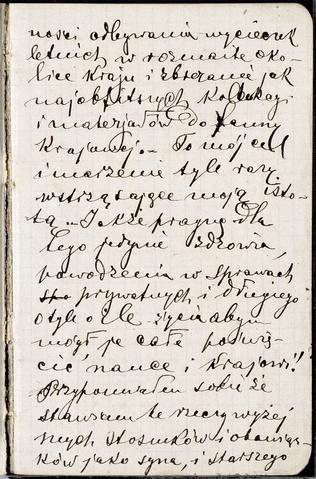 ności odbywania wycieczek
letnich w rozmaite oko-
lice kraju i zbierania jak
najobfitszych kollekcyi
i materjałów do fauny
krajowej. – To mój cel
i marzenie tyle razy
wstrząsające moją isto-
tą – Jakże pragnę dla
tego jedynie zdrowia,
powodzenia w sprawach
prywatnych i długiego
o tyle o ile życia abym
mógł je całe poświę-
cić, nauce i krajowi!
Przypomniałem sobie że
stawiam te rzeczy wyżej
innych stosunków i obowiąz-
ków jako syna, i starszego